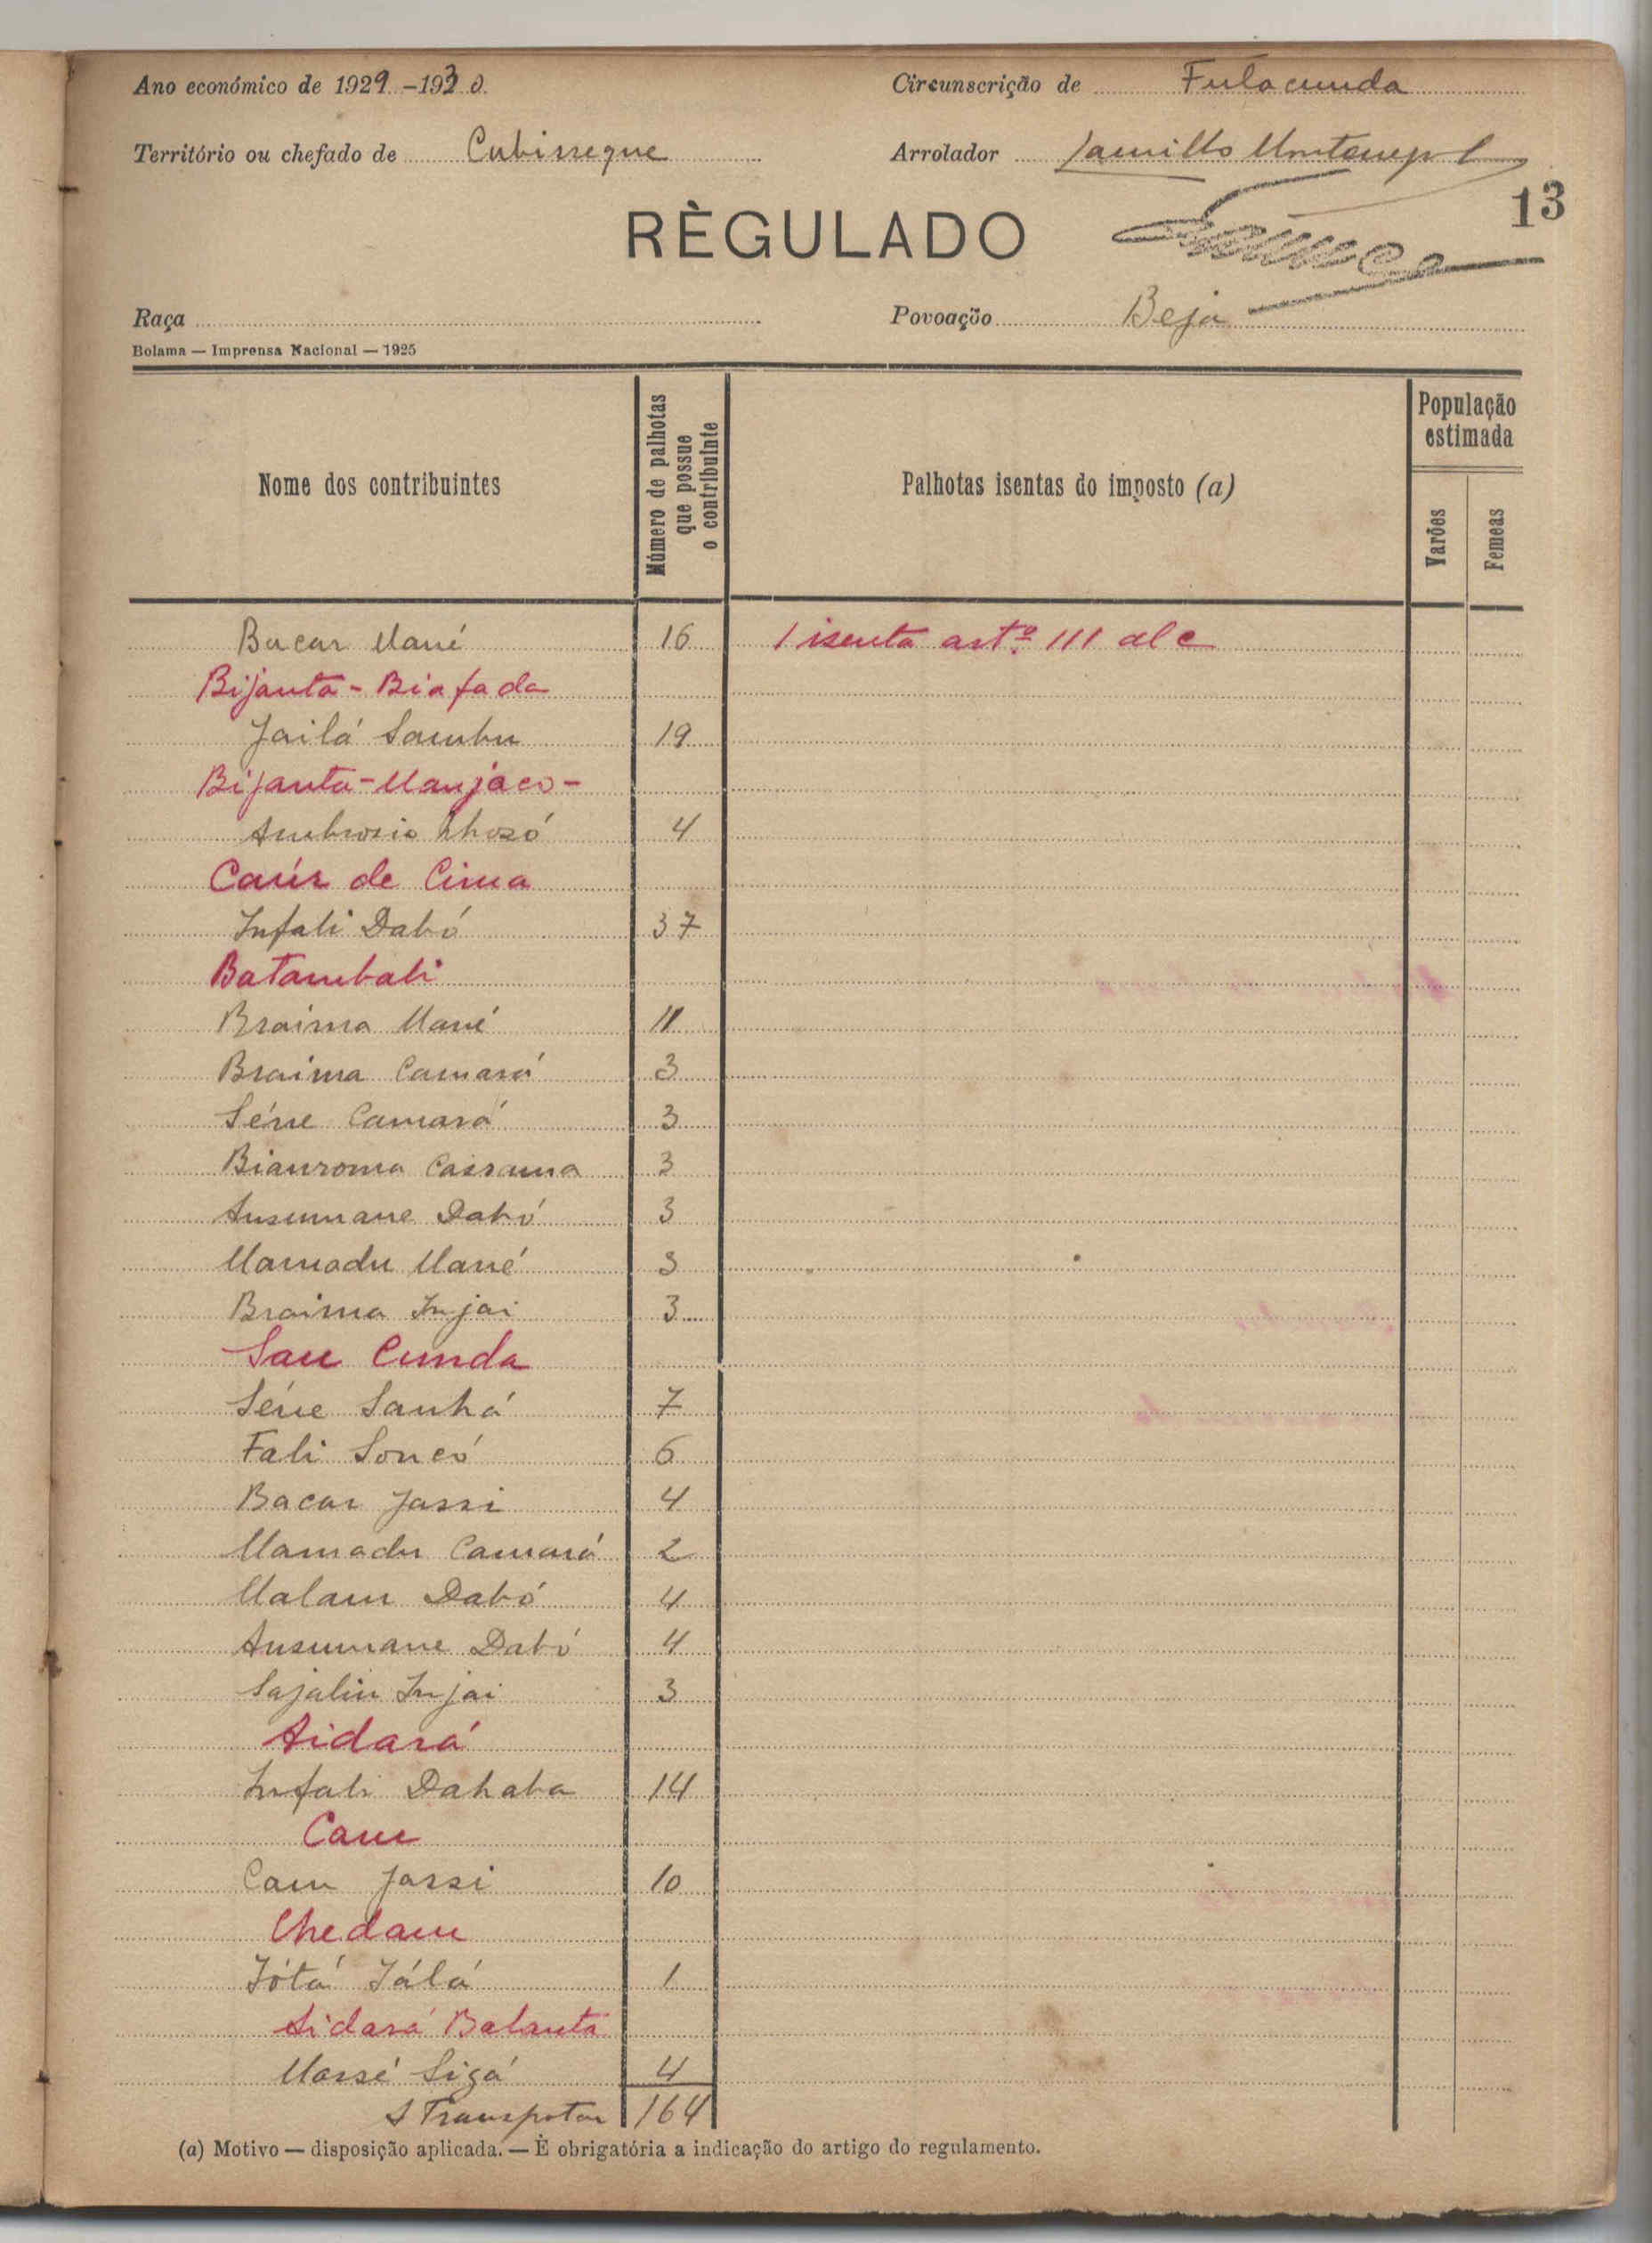 Ano económico de 1929-1930
Circunscrição de Fulacunda
Território ou chefado de Cubisseque
Arrolador
13
RÈGULADO
Raça
Povoação Beja
Bolama — Imprensa Nacional — 1925
Nome dos contribuintes
Número de palhotas que possue o contribuinte
Palhotas isentas do imposto (a)
População estimada
Varões
Femeas
Bacar Mané 16 1 isenta artº 111 al c
Bijanta - Biafada
Jailá Sambu 19
Bijanta - Manjaco -
Ambrosio 4
Caúr de Cima
Infali Dabó 37
Batambali
Braima Mané 11
Braima Camará 3
Séne Camará 3
Bianroma Cassama 3
Ansumane Dabó 3
Mamadu Mané 3
Braima Injai 3
Sau Cunda
Séne Sanhá 7
Fali Soncó 6
Bacar Jassi 4
Mamadu Camará 2
Malam Dabó 4
Ansumane Dabó 4
Sajaliu Injai 3
Aidará
Infali Dahaba 14
Cam
Cam Jassi 10
Chedam
Jótá Jálá 1
Aidará Balanta
Massé Sigá 4
A Transpotar 164
(a) Motivo — disposição aplicada. — È obrigatória a indicação do artigo do regulamento.